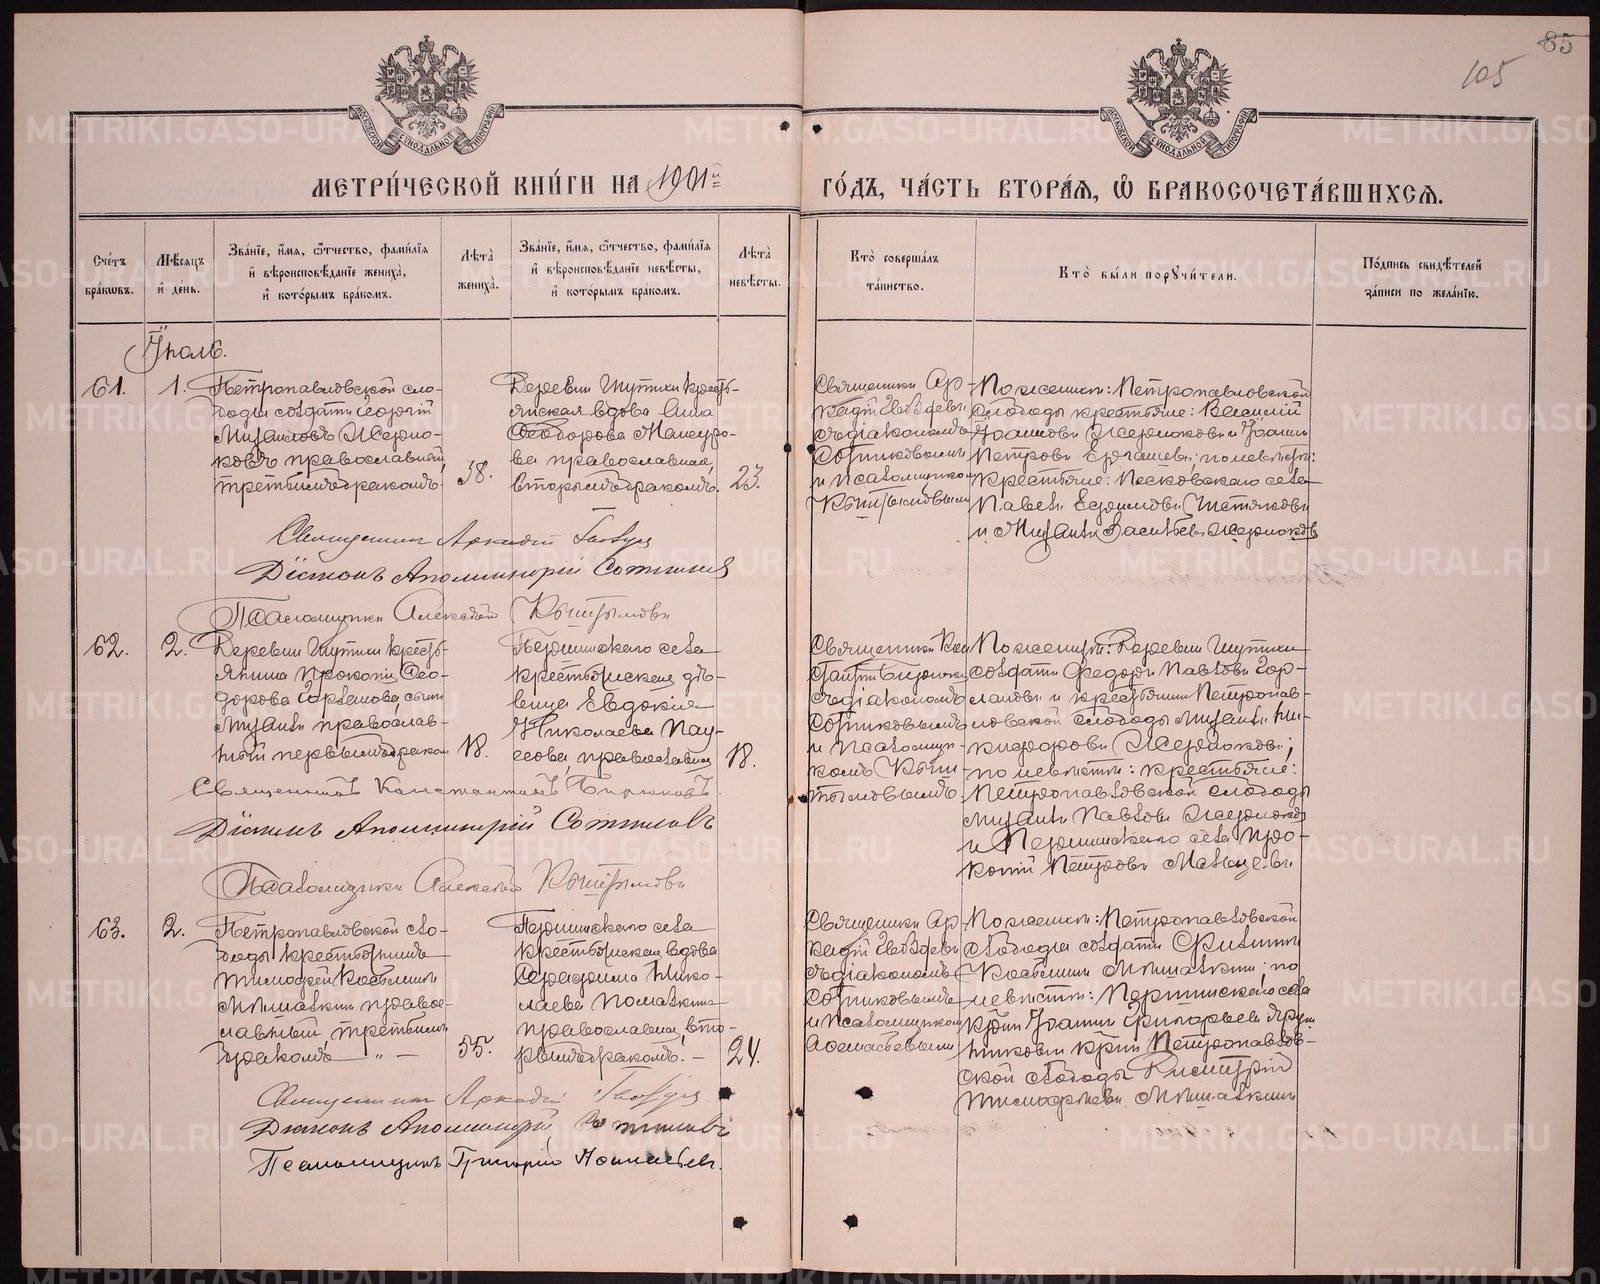 85
105
МОСКОВСКОЙ СѴНОДАЛЬНОЙ ТИПОГРАФІИ
МОСКОВСКОЙ СѴНОДАЛЬНОЙ ТИПОГРАФІИ
МЕТРИ́ЧЕСКОЙ КНИ́ГИ НА 1901 й
ГО́ДЪ, ЧА́СТЬ ВТОРА́Ѧ, Ѽ БРАКОСОЧЕТА́ВШИХСѦ.
Сче́тъ бра́кѡвъ.
Мѣ́сѧцъ и҆ де́нь.
Зва́нїе, и҆́мѧ, ѻ҆́тчество, фами́лїѧ и҆ вѣроисповѣ́данїе жениха̀, и҆ кото́рымъ бра́комъ.
Лѣ́та жениха̀.
Зва́нїе, и҆́мѧ, ѻ҆́тчество, фами́лїѧ и҆ вѣроисповѣ́данїе невѣ́сты, и҆ кото́рымъ бра́комъ.
Лѣ́та невѣ́сты.
Кто̀ соверша́лъ та́инство.
Кто̀ бы́ли порꙋчи́тели.
По́дпись свидѣ́телей за́писи по жела́нїю.
Іюль.
61.
1.
Петропавловской сло-
боды солдатъ Георгій
Михаиловъ Жерно-
ковъ православный,
третьимъ бракомъ.
38.
Деревни Шутихи кресть-
янская вдова Анна
Ѳеодорова Мансуро-
ва православная,
вторымъ бракомъ.
23.
Священникъ Ар-
кадій Гвоздевъ
съ діакономъ
Сотниковымъ
и псаломщикомъ
Кыштымовымъ
По женихѣ: Петропавловской
слободы крестьяне: Василій
Іоанновъ Жерноковъ и Іоаннъ
Петровъ по невѣстѣ:
крестьяне: Песковскаго села
Павелъ Ефимовъ
и Михаилъ Васильевъ Жерноковъ
Священникъ Аркадій Гвоздевъ
Діаконъ Аполлинарій Сотниковъ
Псаломщикъ Алексѣй Кыштымовъ
62.
2.
Деревни Шутихи кресть-
янина Прокопія Ѳео-
дорова Горланова сынъ
Михаилъ православ-
ный первымъ бракомъ
18.
Першинскаго села
крестьянская дѣ-
вица Евдокія
Николаева Пау-
сова, православная
18.
Священникъ Кон-
стантинъ Бирюковъ
съ діакономъ
Сотниковымъ
и псаломщи-
комъ Кыш-
тымовымъ.
По женихѣ: Деревни Шутихи
солдатъ Федоръ Павловъ Гор-
лановъ и крестьянинъ Петропав-
ловской слободы Михаилъ Ни-
кифоровъ Жерноковъ;
по невѣстѣ: крестьяне:
Петропавловской слободы
Михаилъ Павловъ Жерноковъ
и Першинскаго села Про-
копій Петровъ
Священникъ Константинъ Бирюковъ.
Діаконъ Аполлинарій Сотниковъ
Псаломщикъ Алексѣй Кыштымовъ
63.
2.
Петропавловской сло-
боды крестьянинъ
Тимофей Косминъ
Мѣшалкинъ правос-
лавный, третьимъ
бракомъ „ —
55.
Першинскаго села
крестьянская вдова
Серафима Нико-
лаева Помалкина
православная, вто-
рымъ бракомъ. —
24.
Священникъ Ар-
кадій Гвоздевъ
съ діакономъ
Сотниковымъ
и псаломщикомъ
По женихѣ: Петропавловской
слободы солдатъ Филиппъ
Косминъ Мѣшалкинъ; по
невѣстѣ: Першинскаго села
крнъ Іоаннъ Григорьевъ
и крнъ Петропавлов-
ской слободы Димитрій
Тимофѣевъ Мѣшалкинъ
Священникъ Аркадій Гвоздевъ
Діаконъ Аполлинарій Сотниковъ
Псаломщикъ Григорій
METRIKI.GASO-URAL.RU